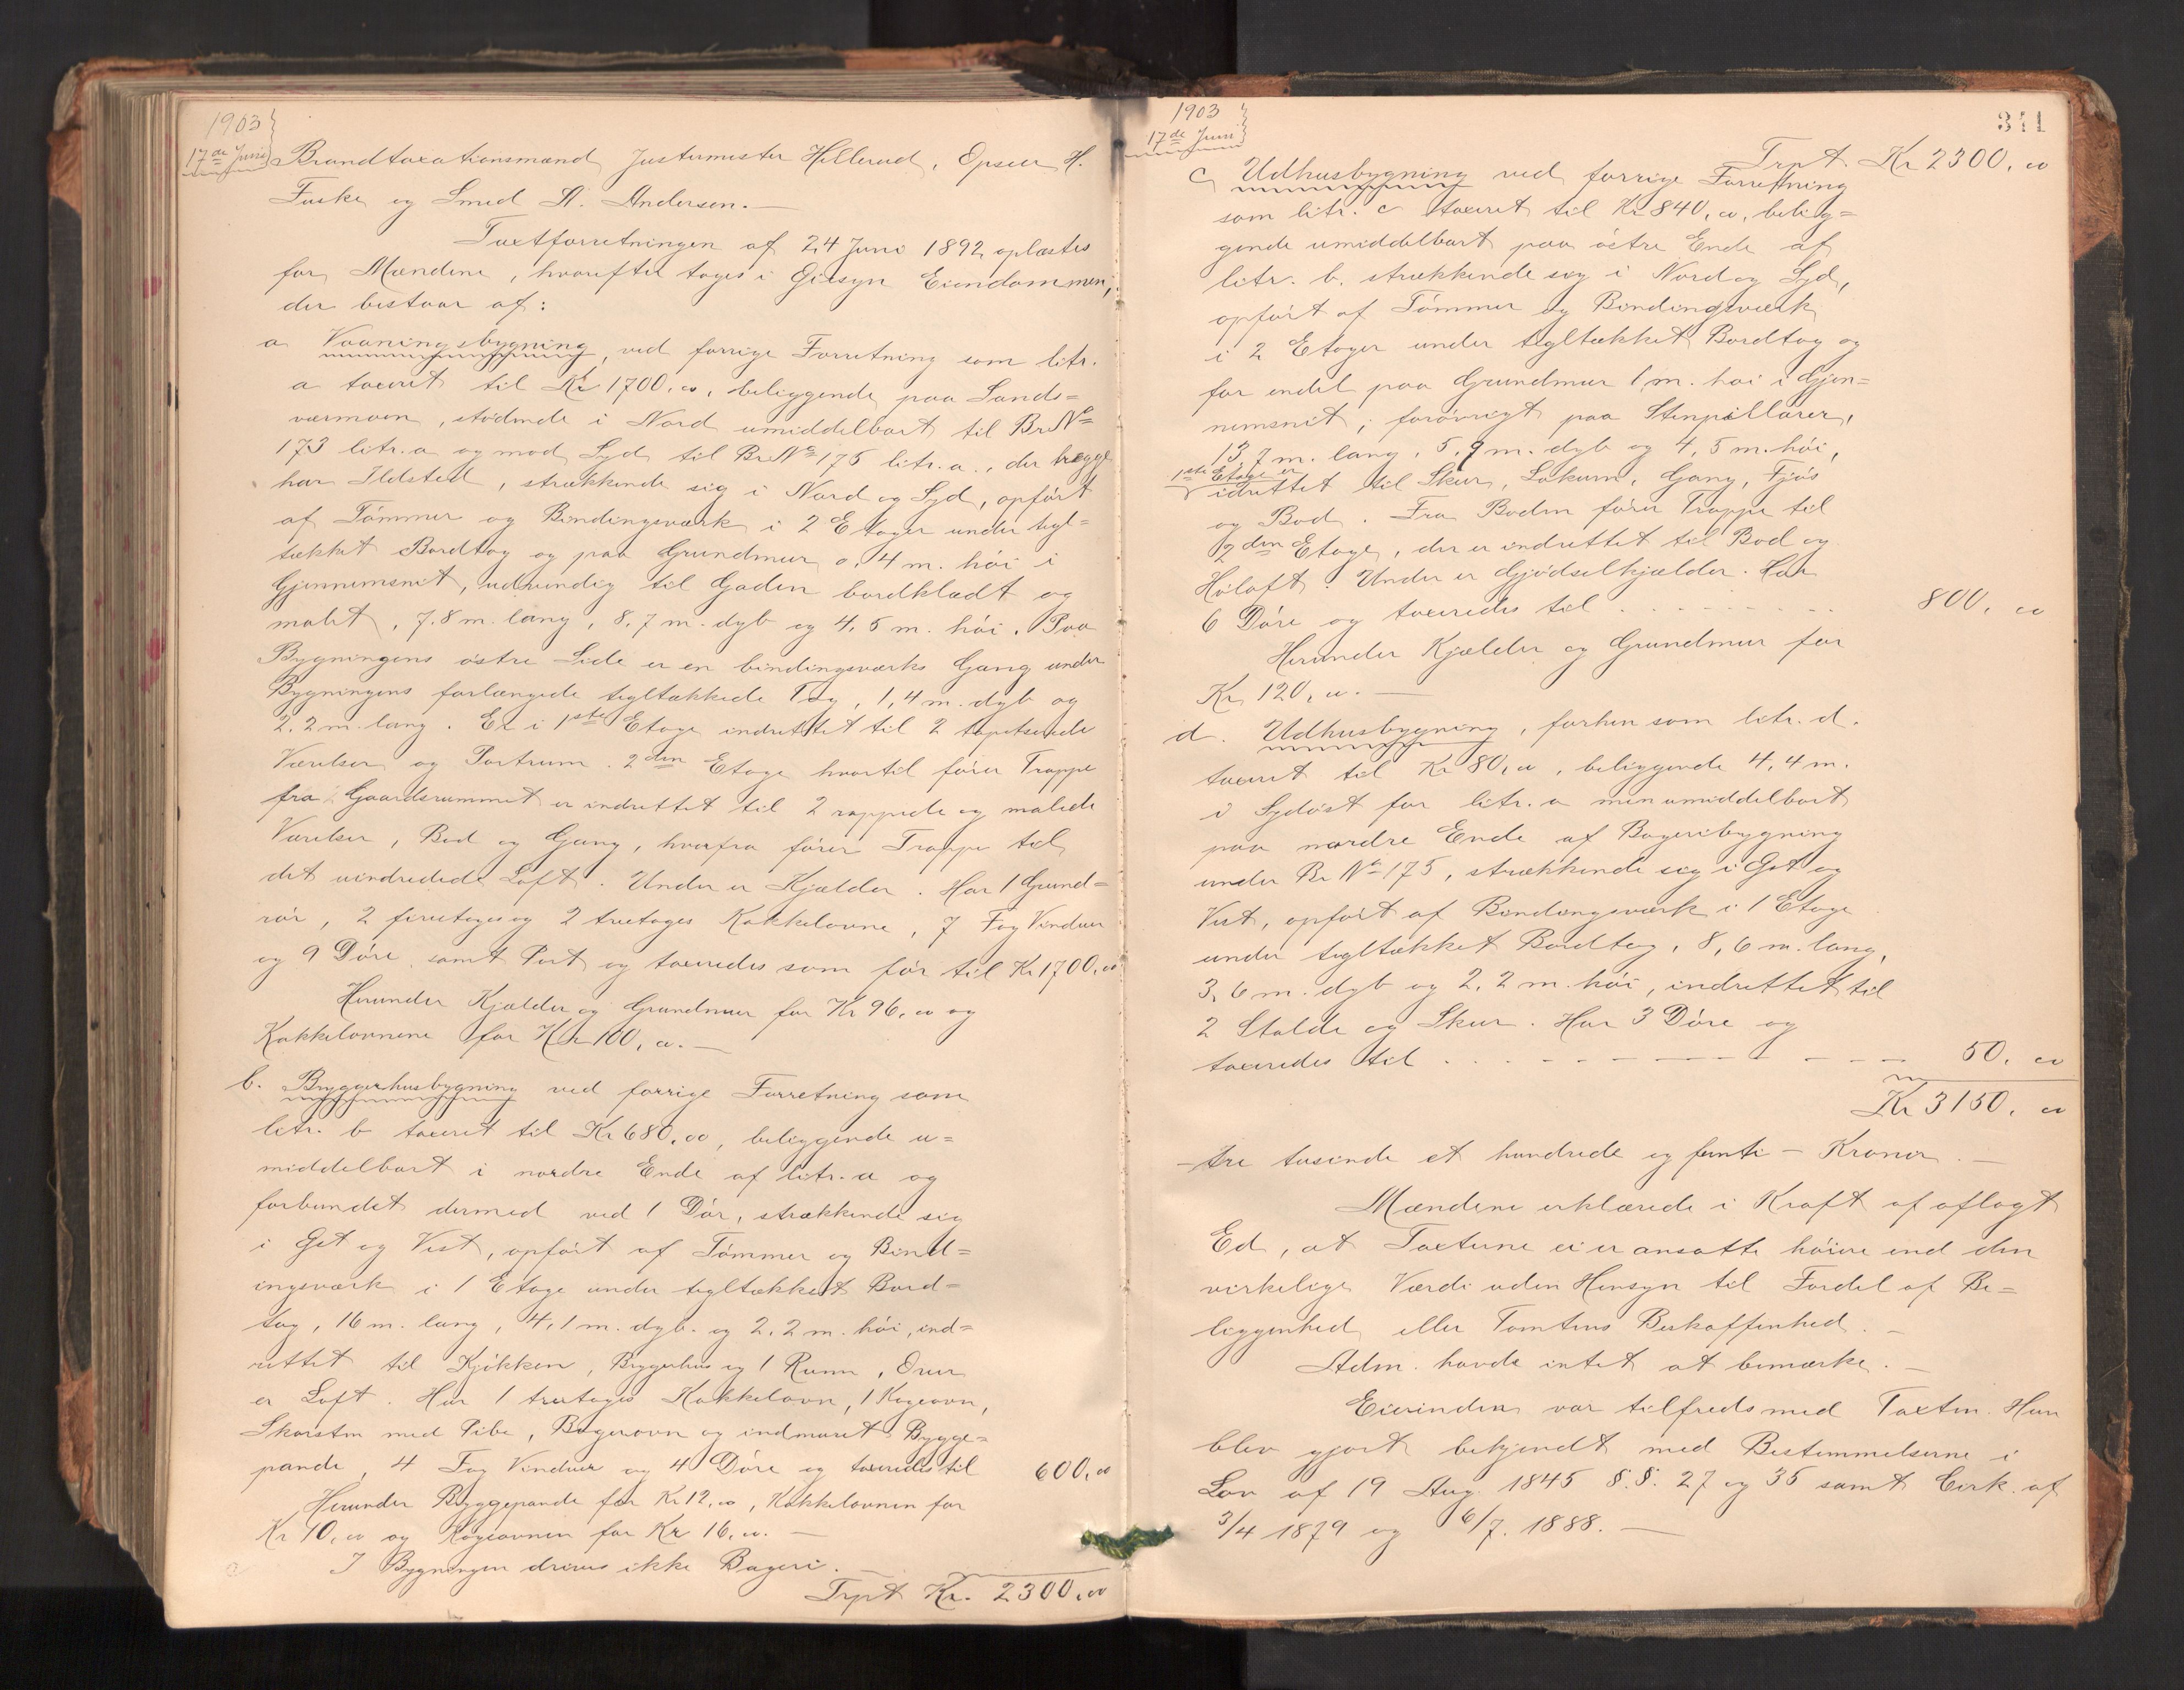 1903
17de Juni
Brandtaxationsmænd Justermester Hillerud, Opseer H.
Fuske og Smed A. Andersen.—
Taxtforretningen af 24 Juni 1892 oplæstes
for Mændene, hvorefter toges i Öiesyn Eiendommen,
der bestaar af:
a Vaaningsbygning, ved forrige Forretning som litr.
a taxeret til Kr 1700.00, beliggende paa Sands=
værmoen, stödende i Nord umiddelbart til Br No
173 litr. a og mod Syd til Br. No 175 litr. a., der begge
har Ildsted, strækkende sig i Nord og Syd, opfört
af Tömmer og Bindingsværk i 2 Etager under tegl=
tækket Bordtag og paa Grundmur 0,4 m. höi i
Gjennemsnit, udvendig til Gaden bordklædt og
malet, 7.8 m. lang, 8,7 m. dyb og 4,5 m. höi. Paa
Bygningens östre Side er en bindingsværks Gang under
Bygningens forlængede tegltækkede Tag, 1,4 m. dyb og
2,2 m. lang. Er i 1ste Etage indrettet til 2 tapetserede
Værelser og Portrum. 2den Etage hvortil förer Trappe
fra Gaardsrummet er indrettet til 2 rappede og malede
Værelser, Bod og Gang, hvorfra förer Trappe til
det uindredede Loft. Under er Kjælder. Har 1 Grund=
rör, 2 fireetages og 2 treetages Kakkelovne, 7 Fag Vinduer
og 9 Döre samt Port og taxeredes som för til Kr 1700.00
Herunder Kjælder og Grundmur for Kr 96.00 og
Kakkelovnene for Kr 100,00.—
b. Bryggerhusbygning ved forrige Forretning som
litr. b taxeret til Kr 680.00, beliggende u=
middelbart i nordre Ende af litr. a og
forbundet dermed ved 1 Dör, strækkende sig
i Öst og Vest, opfört af Tömmer og Bind=
ingsværk i 1 Etage under tegltækket Bord=
tag, 16 m. lang, 4,1 m. dyb og 2,2 m. höi, ind=
rettet til Kjökken, Bryggerhus og 1 Rum, Over
er Loft. Har 1 treetages Kakkelovn, 1 Kogeovn,
Skorsten med Pibe, Bagerovn og indmuret Brygge=
pande, 4 Fag Vinduer og 4 Döre og taxeredes til 600,00
Herunder Bryggepande for Kr 12,00, Kakkelovnen for
Kr 10,00 og Kogeovnen for Kr 16,00.—
I Bygningen drives ikke Bageri.—
Trpt Kr. 2300,00
1903
17de Juni
341
Trpt. Kr 2300,00
c Udhusbygning ved forrige Forretning
som litr. c taxeret til Kr 840,00, belig=
gende umiddelbart paa östre Ende af
litr. b. strækkende sig i Nord og Syd,
opfört af Tömmer og Bindingsværk
i 2 Etager under tegltækket Bordtag og
for endel paa Grundmur 1 m. höi i Gjen=
nemsnit, forövrigt paa Stenpillarer,
13,7 m. lang, 5,9 m. dyb og 4,5 m. höi,
1ste Etage er
idrettet til Skur, Lokum, Gang, Fjös
og Bod. Fra Boden förer Trappe til
2den Etage, der er indrettet til Bod og
Höloft. Under er Gjödselkjælder. Har
6 Döre og taxeredes til 800,00
Herunder Kjælder og Grundmur for
Kr 120,00.—
d. Udhusbygning, forhen som litr. d.
taxeret til Kr 80,00, beliggende 4,4 m.
i Sydöst for litr. a men umiddelbart
paa nordre Ende af Bageribygning
under Br No 175, strækkende sig i Öst og
Vest, opfört af Bindingsværk i 1 Etage
under tegltækket Bordtag, 8,6 m. lang,
3,6 m. dyb og 2,2 m. höi, indrettet til
2 Stalde og Skur. Har 3 Döre og
taxeredes til 50.00
Kr 3150.00
— tre tusinde et hundrede og femti — Kroner.—
Mændene erklærede i Kraft af aflagt
Ed, at Taxterne ei er ansatte höiere end den
virkelige Værdi uden Hensyn til Fordel af Be=
liggenhed eller Tomtens Beskaffenhed.—
Adm. havde intet at bemærke.—
Eierinden var tilfreds med Taxten. Hun
blev gjort bekjendt med Bestemmelserne i
Lov af 19 Aug. 1845 §.§. 27 og 35 samt Cirk. af
3/4 1879 og 6/7. 1888.—